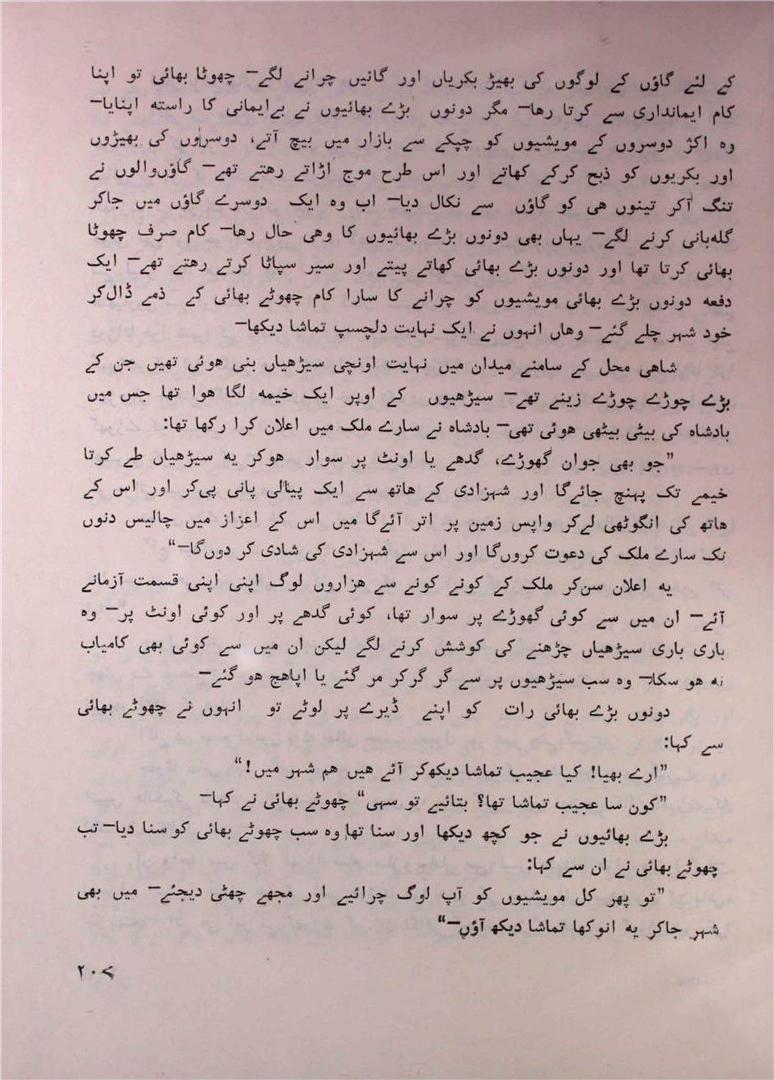 کے لئے گاؤں کے لوگوں کی بھیڑ بکریاں اور گائیں چرانے لگے— چھوٹا بھائی تو اپنا
کام ایمانداری سے کرتا رھا— مگر دونوں بڑے بھائیوں نے بےایمانی کا راستہ اپنایا—
وہ اکژ دوسروں کے مویشیوں کو چپکے سے بازار میں بیچ آتے، دوسروں کی بھیڑوں
اور بکریوں کو ذبح کرکے کھاتے اور اس طرح موج اڑاتے رھتے تھے— گاؤںوالوں نے
تنگ آکر تینوں ھی کو گاؤں سے نکال دیا— اب وہ ایک دوسرے گاؤں میں جاکر
گلہبانی کرنے لگے— یہاں بھی دونوں بڑے بھائیوں کا وھی حال رھا— کام صرف چھوٹا
بھائی کرتا تھا اور دونوں بڑے بھائی کھاتے پیتے اور سیر سپاٹا کرتے رھتے تھے— ایک
دفعہ دونوں بڑے بھائی مویشیوں کو چرانے کا سارا کام چھوٹے بھائی کے ذمے ڈالکر
خود شہر چلے گئے— وھاں انہوں نے ایک نہایت دلچسپ تماشا دیکھا—
شاھی محل کے سامنے میدان میں نہایت اونچی سیڑھیاں بنی ھوئی تھیں جن کے
بڑے چوڑے چوڑے زینے تھے— سیڑھیوں کے اوپر ایک خیمہ لگا ھوا تھا جس میں
بادشاہ کی بیٹی بیٹھی ھوئی تھی— بادشاہ نے سارے ملک میں اعلان کرا رکھا تھا:
”جو بھی جوان گھوڑے، گدھے یا اونٹ پر سوار ھوکر یہ سیڑھیاں طے کرتا
خیمے تک پہنچ جائےگا اور شہزادی کے ھاتھ سے ایک پیالی پانی پیکر اور اس کے
ھاتھ کی انگوٹھی لےکر واپس زمین پر اتر آئےگا میں اس کے اعزاز میں چالیس دنوں
تک سارے ملک کی دعوت کروںگا اور اس سے شہزادی کی شادی کر دوںگا—“
یہ اعلان سنکر ملک کے کونے کونے سے ھزاروں لوگ اپنی اپنی قسمت آزمانے
آئے— ان میں سے کوئی گھوڑے پر سوار تھا، کوئی گدھے پر اور کوئی اونٹ پر— وہ
باری باری سیڑھیاں چڑھنے کی کوشش کرنے لگے لیکن ان میں سے کوئی بھی کامیاب
نہ ھو سکا— وہ سب سیڑھیوں پر سے گر گرکر مر گئے یا اپاھج ھو گئے—
دونوں بڑے بھائی رات کو اپنے ڈیرے پر لوٹے تو انہوں نے چھوٹے بھائی
سے کہا:
”ارے بھیا! کیا عجیب تماشا دیکھکر آئے ھیں ھم شہر میں!“
”کون سا عجیب تماشا تھا؟ بتائیے تو سہی“ چھوٹے بھائی نے کہا—
بڑے بھائیوں نے جو کچھ دیکھا اور سنا تھا وہ سب چھوٹے بھائی کو سنا دیا— تب
چھوٹے بھائی نے ان سے کہا:
”تو پھر کل مویشیوں کو آپ لوگ چرائیے اور مجھے چھٹی دیجئے— میں بھی
شہر جاکر یہ انوکھا تماشا دیکھ آؤں—“
۲۰۷